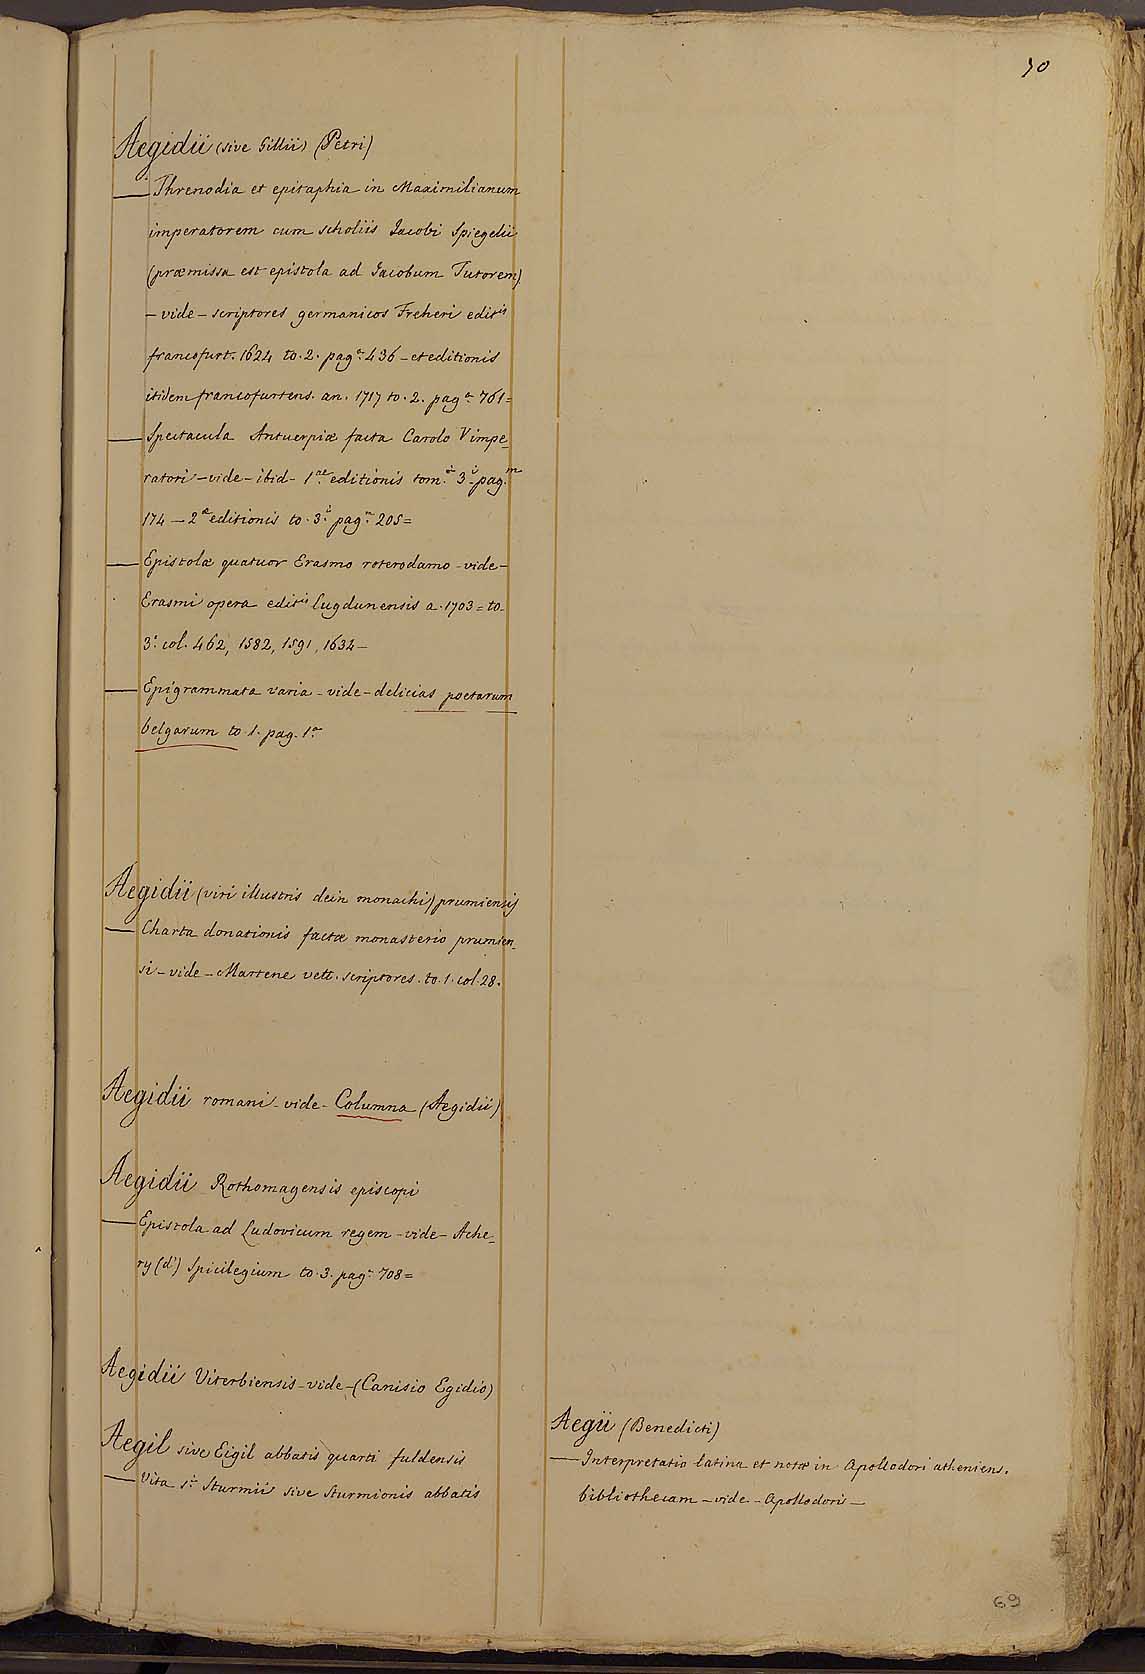 70
Aegidii (sive Gillii) (Petri)
— Threnodia et epitaphia in Maximilianum
imperatorem cum scholiis Jacobi Spiegelii
(præmissa est epistola ad Jacobum Tutorem)
– vide – scriptores germanicos Freheri editis
francofurt. 1624 to. 2. paga. 436 – et editionis
itidem francofurtens. an. 1717 to. 2. paga. 761=
— Spectacula Antuerpiæ facta Carolo V impe-
ratori – vide – ibid – 1ae. editionis tom.i 3.i pag.m
174 – 2æ editionis to. 3.i paga. 205=
— Epistolæ quatuor Erasmo roterodamo – vide –
Erasmi opera editis lugdunensis a. 1703 = to.
3.i col. 462, 1582, 1591, 1634 –
— Epigrammata varia – vide – delicias poetarum
belgarum to. 1. pag. 1a.
Aegidii (viri illustris dein monachi) prumiensis
— Charta donationis factæ monasterio prumien-
si – vide – Martene vett. scriptores. to. 1. col. 28.
Aegidii romani – vide – Columna (Aegidii)
Aegidii Rothomagensis episcopi
— Epistola ad Ludovicum regem – vide – Ache-
ry (d') Spicilegium to. 3. paga. 708=
Aegidii Viterbiensis – vide – (Canisio Egidio)
Aegil sive Eigil abbatis quarti fuldensis
— Vita s.i Sturmii sive Sturmionis abbatis
Aegii (Benedicti)
— Interpretatio latina et notæ in Apollodori atheniens.
bibliothecam – vide – Apollodori –
69